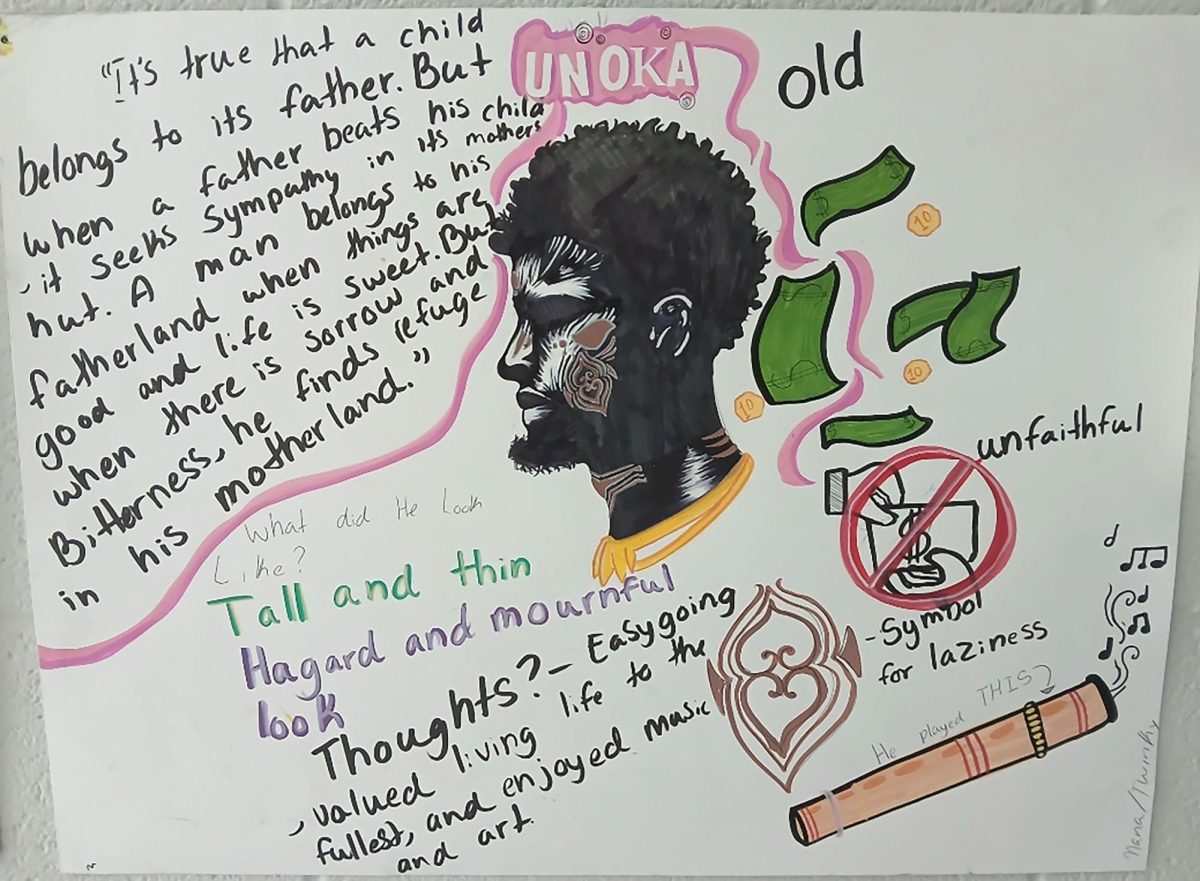 "It's true that a child
belongs to its father. But
when a father beats his child
, it seeks sympathy in its mothers
hut. A man belongs to his
fatherland when things are
good and life is sweet. But
when there is sorrow and
Bitterness, he finds refuge
in his motherland."
UNOKA
old
10
10
10
unfaithful
What did He Look
Like?
Tall and thin
Hagard and mournful
look
Thoughts? - Easygoing
, valued living life to the
fullest, and enjoyed music
and art.
- Symbol
for laziness
He played THIS
Nana/Twinky